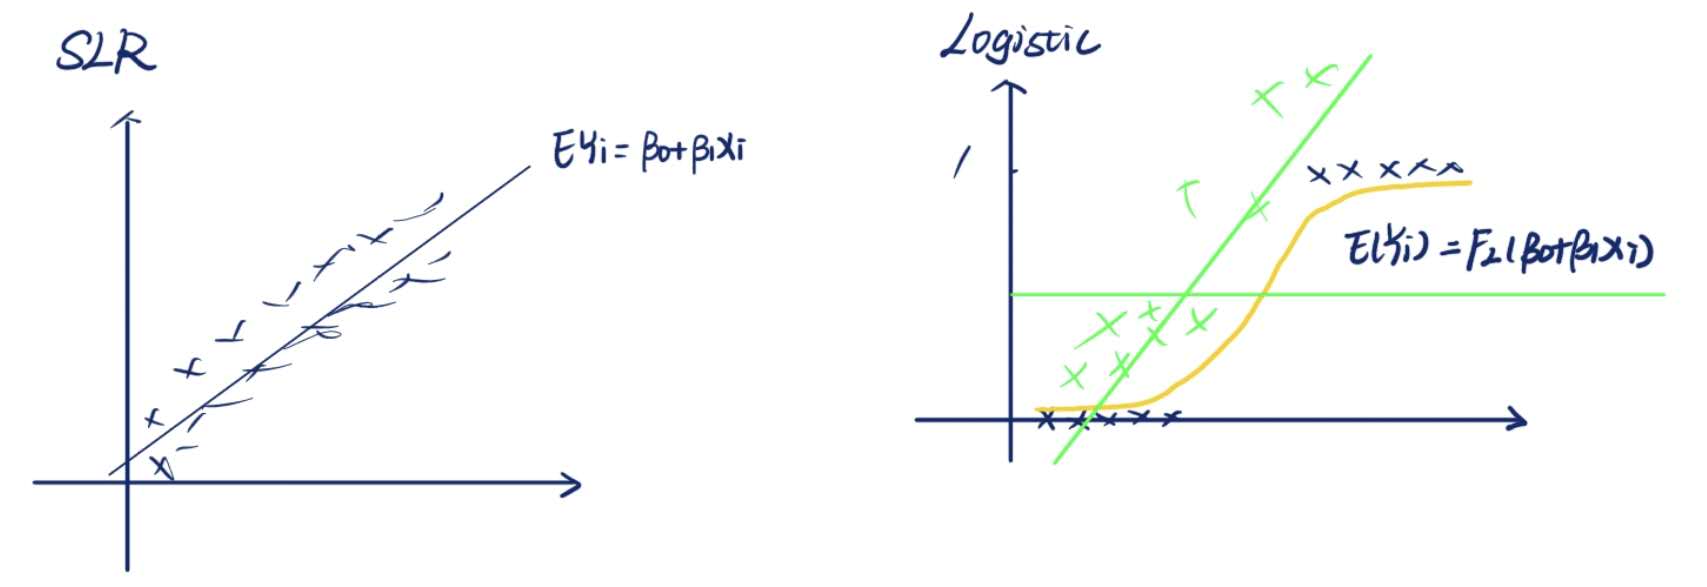 SLR
EYi = β0+β1Xi
Logistic
1
E(Yi) = FL(β0+β1Xi)